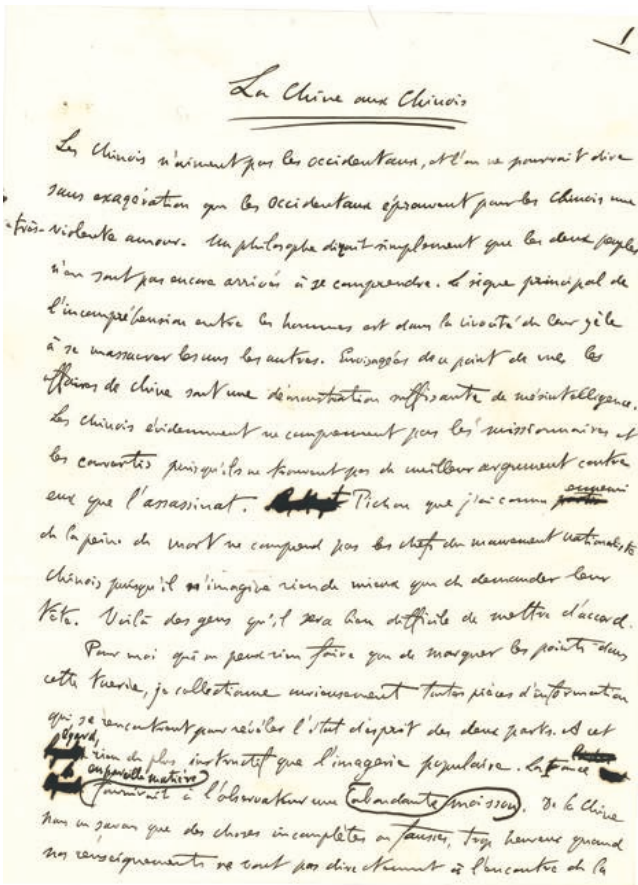 1
La Chine aux Chinois
Les Chinois n'aiment pas les occidentaux, et l'on ne pourrait dire
sans exagération que les occidentaux éprouvent pour les Chinois une
très violente amour. Un philosophe dirait simplement que les deux peuples
n'en sont pas encore arrivés à se comprendre. Le signe principal de
l'incompréhension entre les hommes est dans la vivacité de leur zèle
à se massacrer les uns les autres. Envisagées de ce point de vue, les
affaires de Chine sont une démonstration suffisante de mésintelligence.
Les Chinois évidemment ne comprennent pas les missionnaires et
les convertis puisqu'ils ne trouvent pas de meilleur argument contre
ennemi
eux que l'assassinat. Pichon que j'ai connu
de la peine de mort ne comprend pas les chefs du mouvement nationaliste
chinois puisqu'il n'imagine rien de mieux que de demander leur
tête. Voilà des gens qu'il sera bien difficile de mettre d'accord.
Pour moi qui ne peux rien faire que de marquer les points dans
cette tuerie, je collectionne curieusement toutes pièces d'information
qui se rencontrent pour révéler l'état d'esprit des deux parts. A cet
égard,
rien de plus instructif que l'imagerie populaire. La France
en pareille matière
fournirait à l'observateur une abondante moisson. De la Chine
nous ne savons que des choses incomplètes ou fausses, trop heureux quand
nos renseignements ne vont pas directement à l'encontre de la